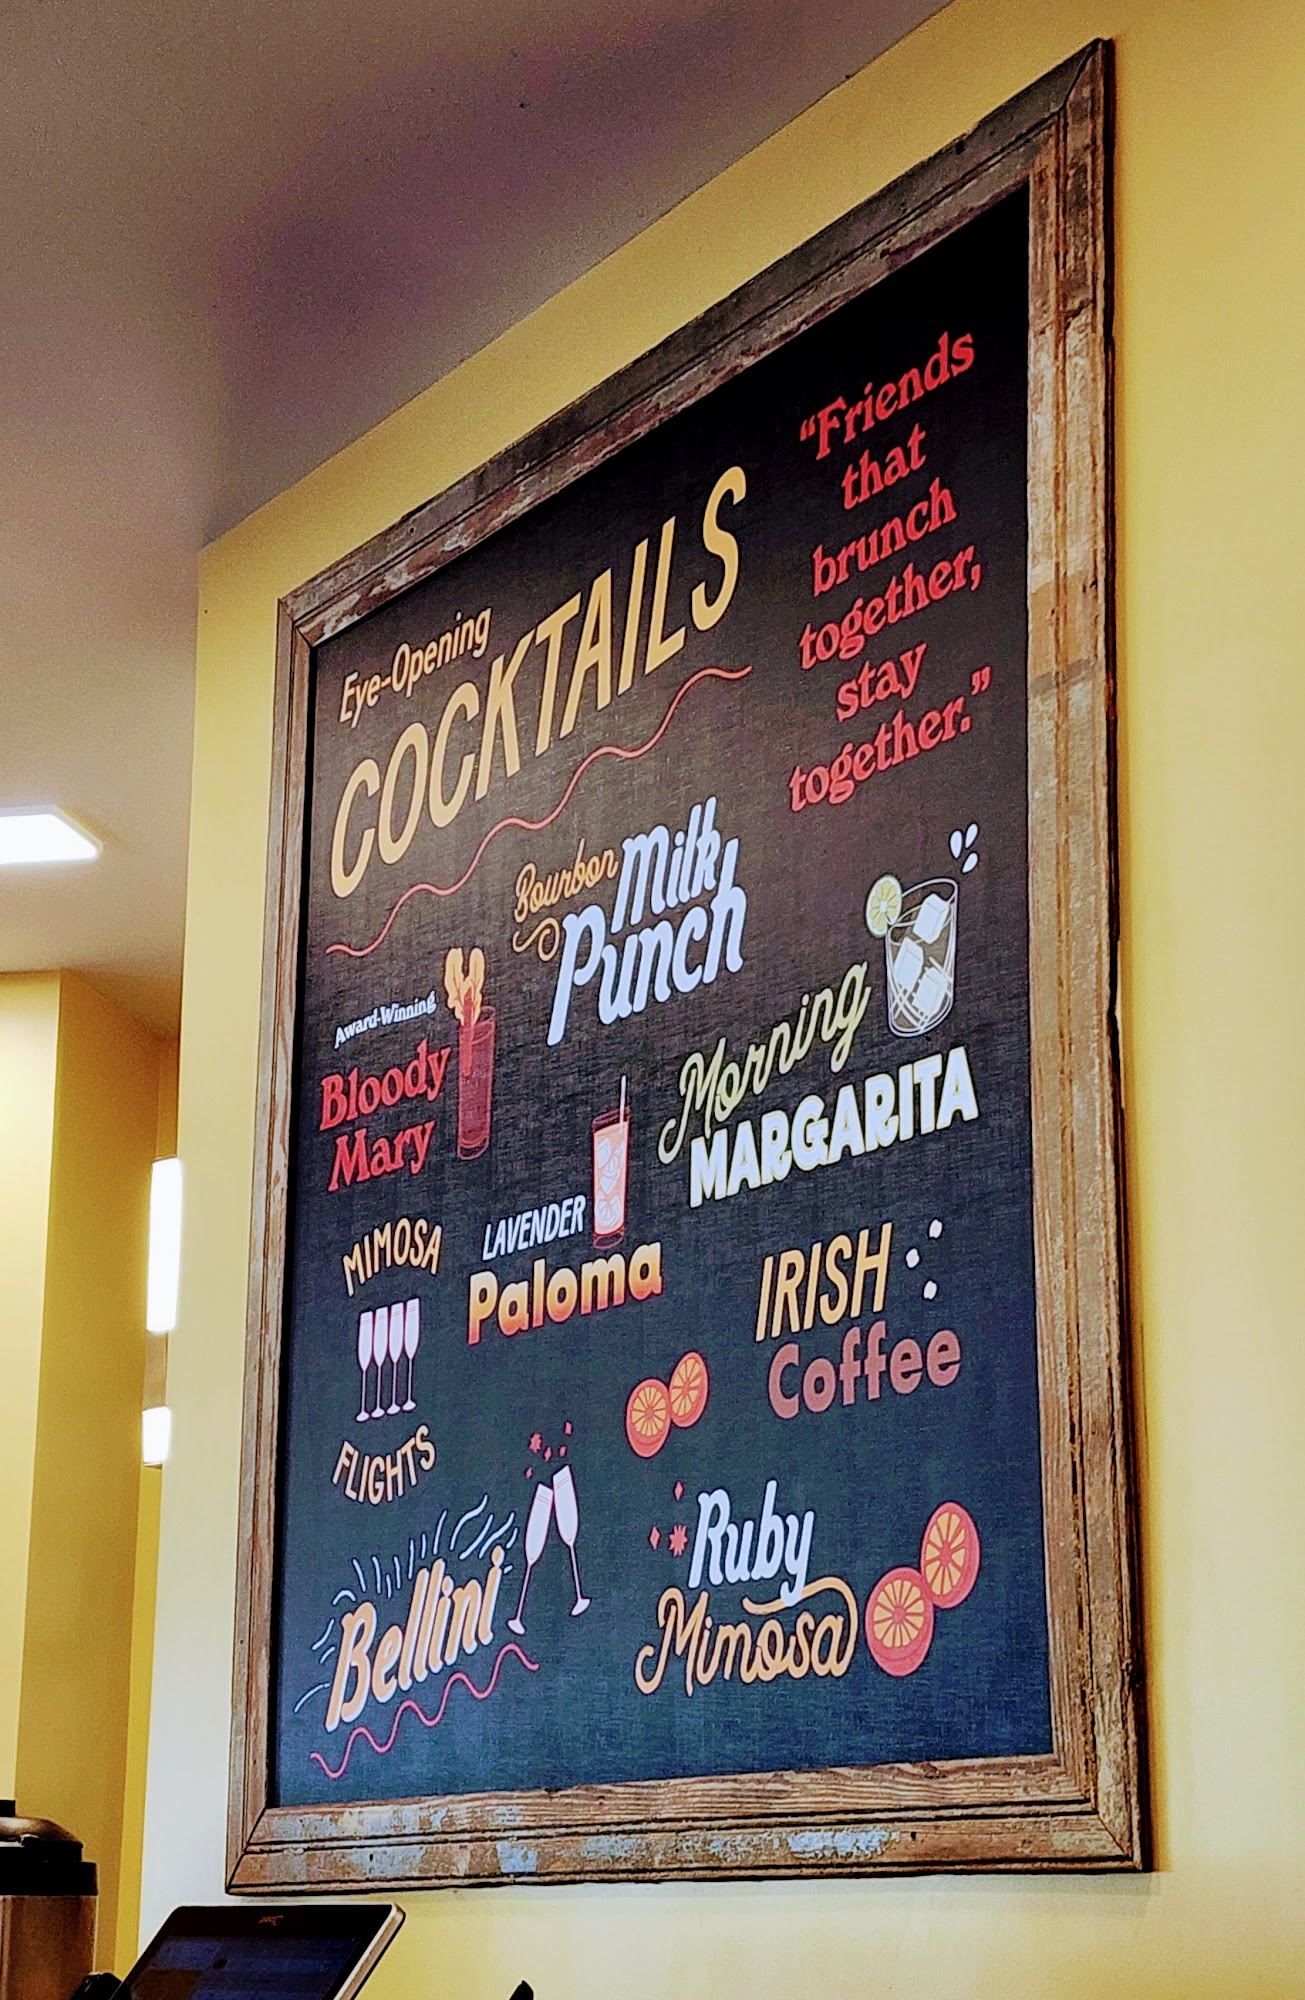 Eye-Opening
COCKTAILS
"Friends
that
brunch
together,
stay
together."
Bourbon Milk
Punch
Award-Winning
Bloody
Mary
Morning
MARGARITA
LAVENDER
Paloma
MIMOSA
FLIGHTS
IRISH
Coffee
Bellini
Ruby
Mimosa